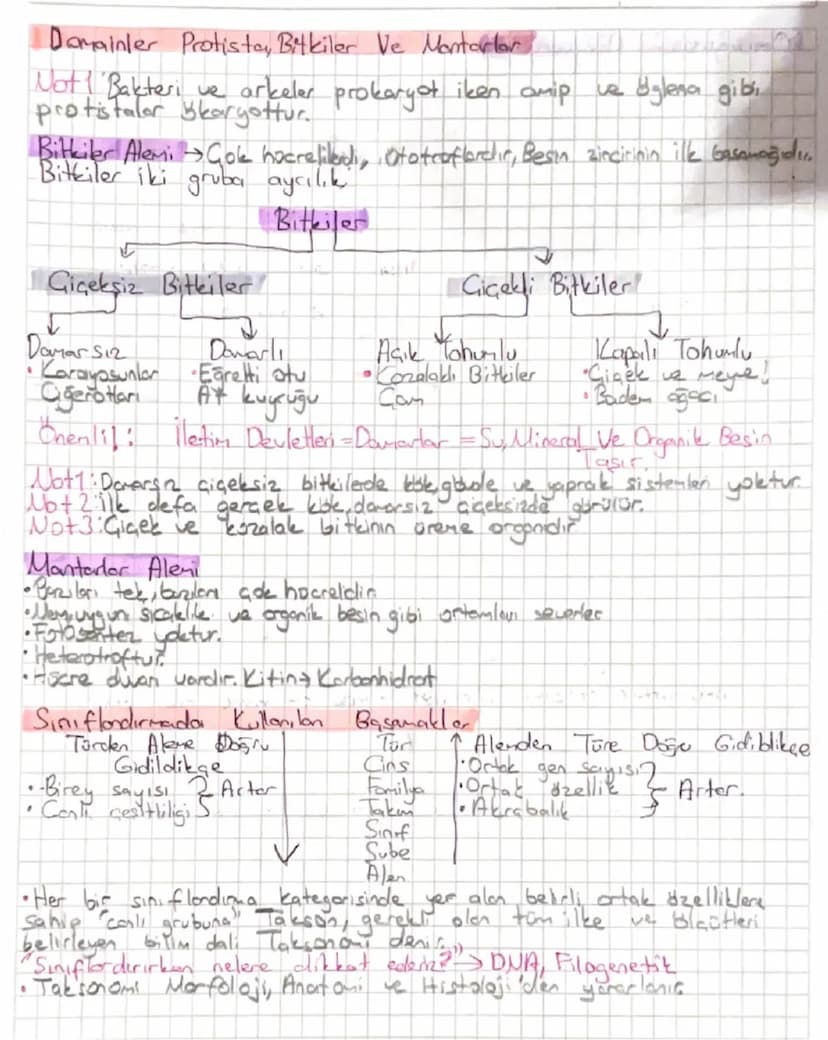 Domainler Protista, Bitkiler Ve Mantarlar
Not1 Bakteri ve arkeler prokaryot iken amip ve öglena gibi
protistalar ökaryottur.
Bitkiler Alemi → Çok hücrelilerdi, Ototroflardır, Besin zincirinin ilk basamağıdır.
Bitkiler iki gruba ayrılık
Bitkiler
Çiçeksiz Bitkiler Çiçekli Bitkiler
Damarsız Damarlı Açık Tohumlu Kapalı Tohumlu
• Karayosunlar • Eğrelti otu • Kozalaklı Bitkiler • Çiçek ve meyve!
Ciğerotları At kuyruğu Çam • Badem ağacı
Önemli!: İletim Devletleri = Damarlar = Su, Mineral Ve Organik Besin
Taşır.
Not1: Damarsız çiçeksiz bitkilerde kök, gövde ve yaprak sistemleri yoktur.
Not 2: ilk defa gerçek kök, damarsız çiçeksizde görülür.
Not3: Çiçek ve kozalak bitkinin üreme organıdır
Mantarlar Alemi
• Bazıları tek, bazıları çok hücrelidir
• Nem, uygun sıcaklık ve organik besin gibi ortamları severler
• Fotosentez yoktur.
• Heterotroftur.
• Hücre duvarı vardır. Kitin → Karbonhidrat
Sınıflandırmada Kullanılan Basamaklar
Türden Aleme Doğru Tür Alemden Türe Doğu Gidiblikçe
Gidildikçe Cins • Ortak gen sayısı
• Birey sayısı } Artar Familya • Ortak özellik } Artar.
• Canlı çeşitliliği Takım • Akrabalık
Sınıf
Şube
Alem
• Her bir sınıflandırma kategorisinde yer alan belirli ortak özelliklere
sahip "canlı grubuna" Takson, gerekli olan tüm ilke ve ölçütleri
belirleyen bilim dalı Taksonomi denir.
"Sınıflandırırken nelere dikkat ederiz?" → DNA, Filogenetik
• Taksonomi Morfoloji, Anatomi ve Histoloji'den yararlanır.